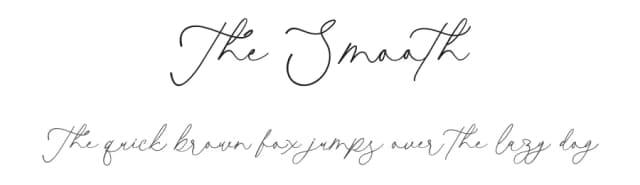 The Smooth
The quick brown fox jumps over the lazy dog